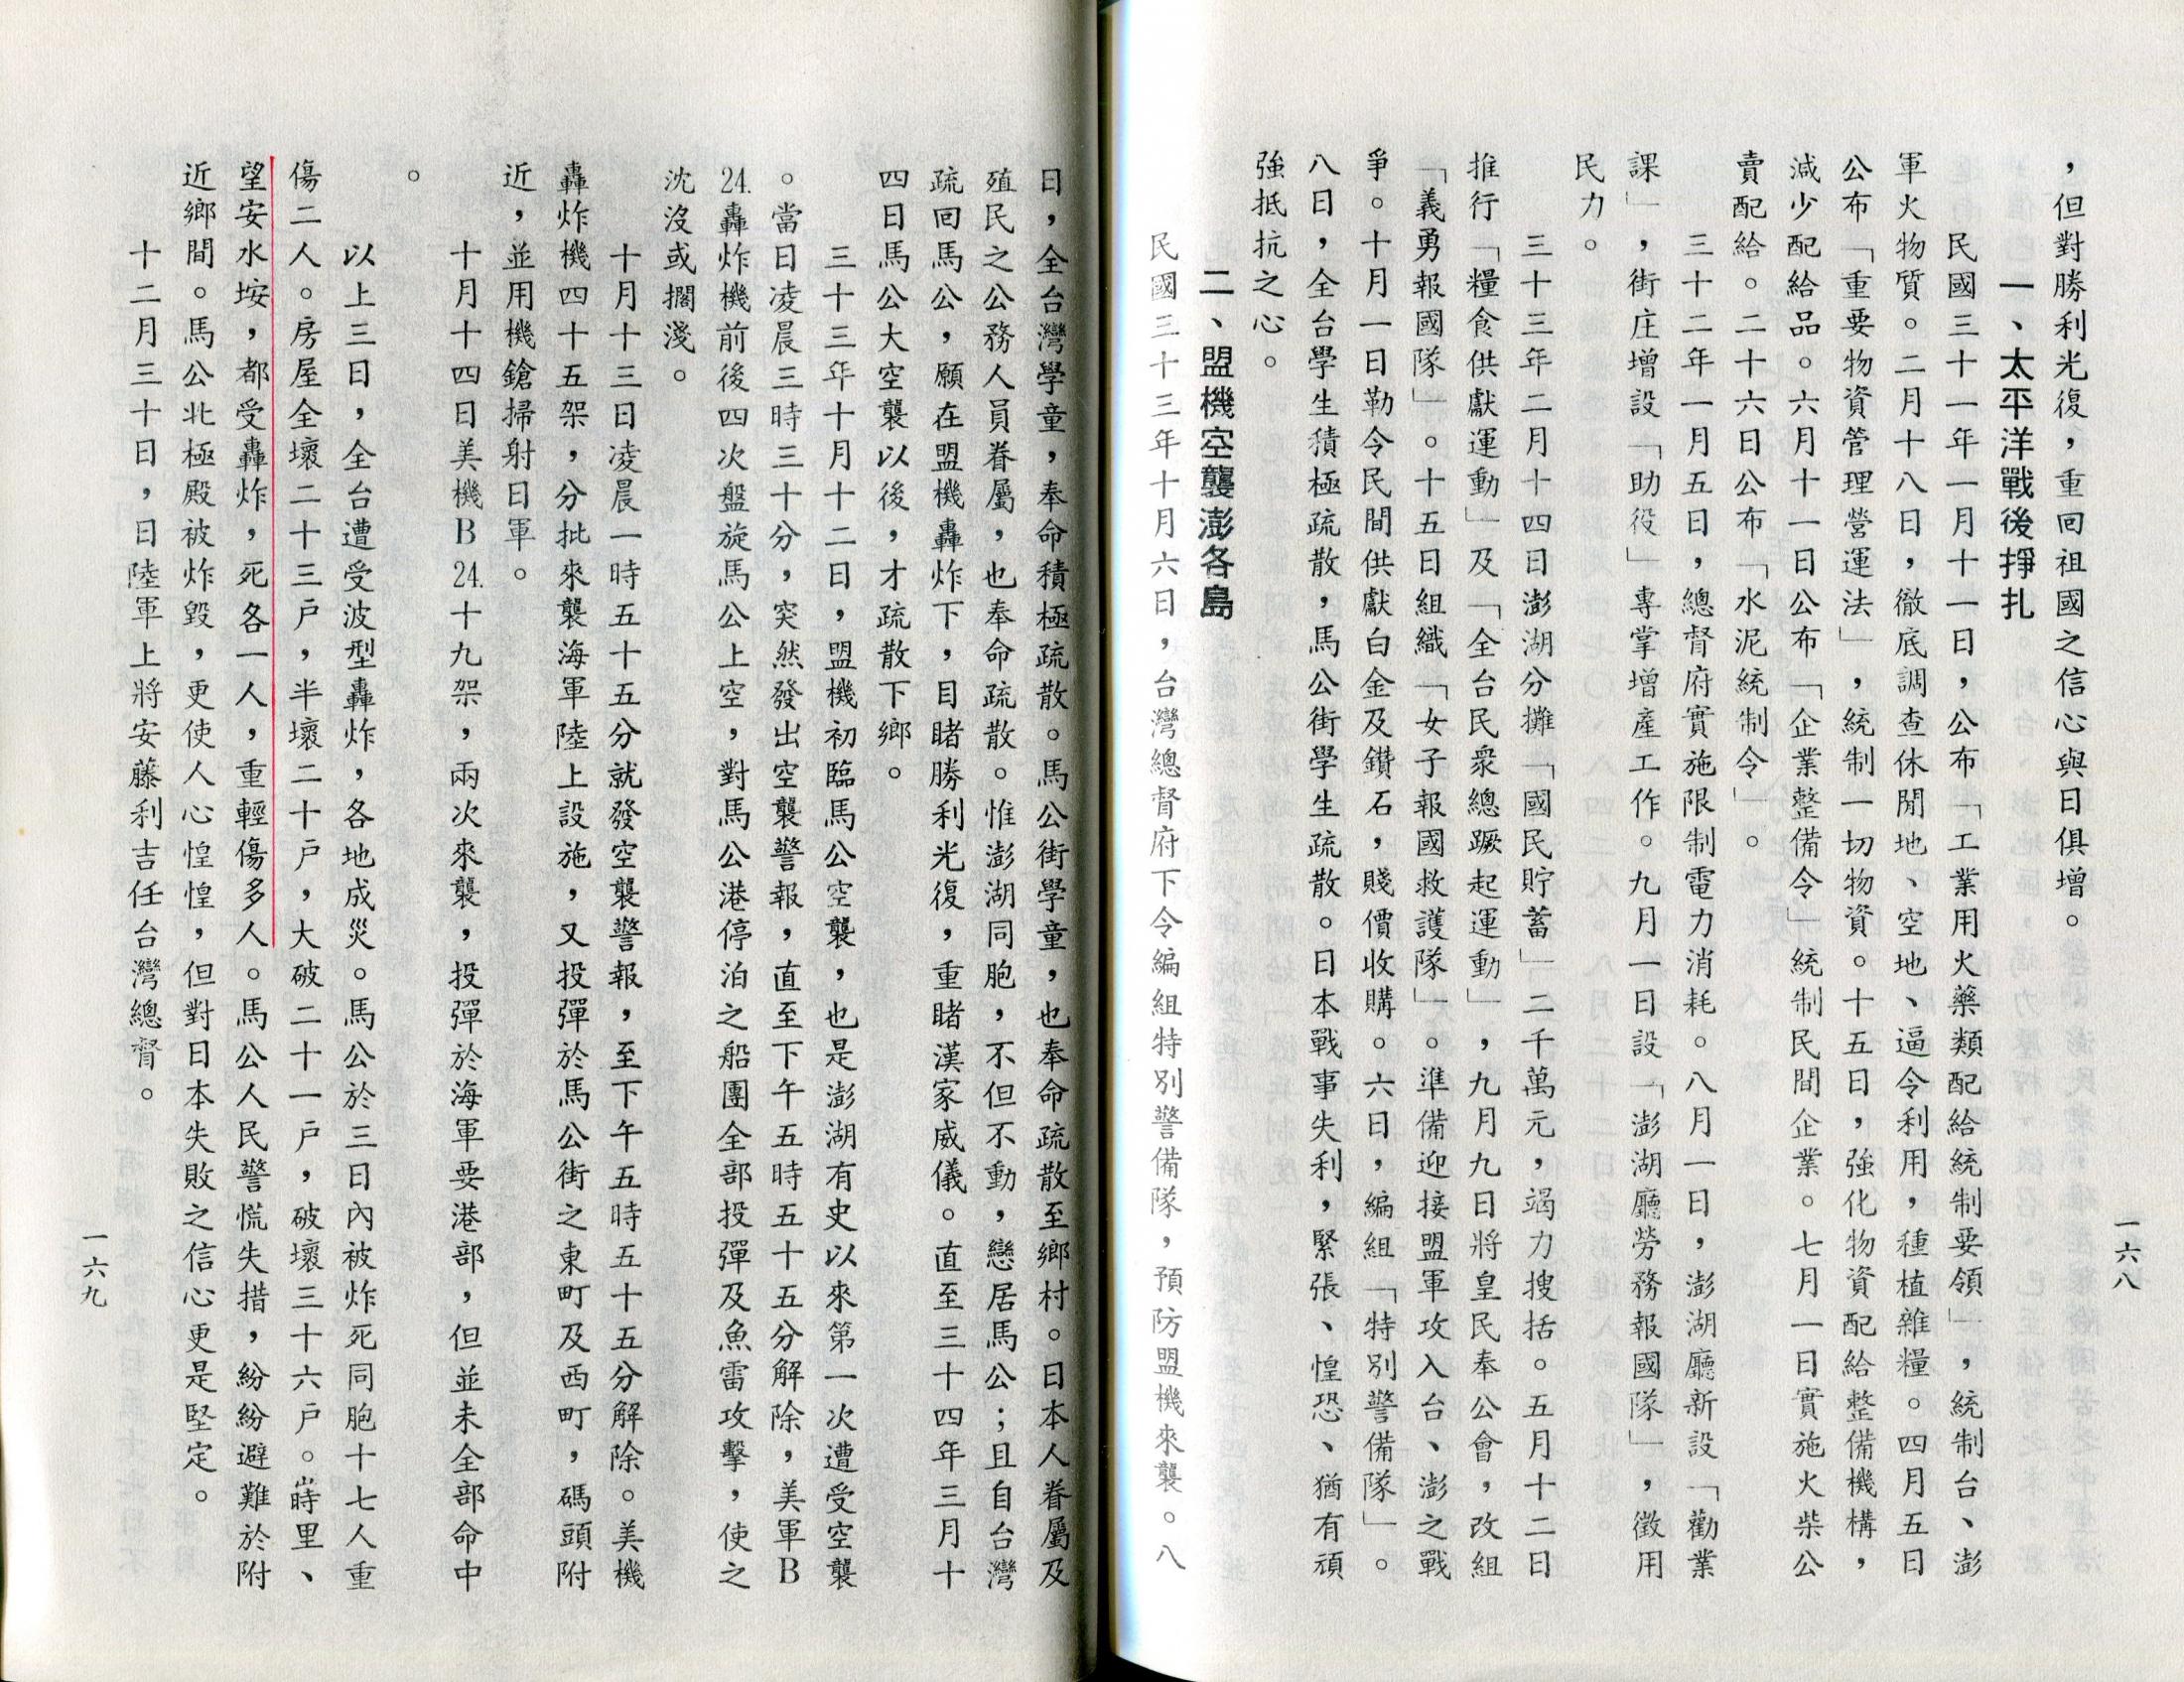 ，但對勝利光復，重回祖國之信心與日俱增。
一、太平洋戰後掙扎
民國三十一年一月十一日，公布「工業用火藥類配給統制要領」，統制台、澎
軍火物質。二月十八日，徹底調查休閒地、空地、逼令利用，種植雜糧。四月五日
公布「重要物資管理營運法」，統制一切物資。十五日，強化物資配給整備機構，
減少配給品。六月十一日公布「企業整備令」統制民間企業。七月一日實施火柴公
賣配給。二十六日公布「水泥統制令」。
三十二年一月五日，總督府實施限制電力消耗。八月一日，澎湖廳新設「勸業
課」，街庄增設「助役」專掌增產工作。九月一日設「澎湖廳勞務報國隊」，徵用
民力。
三十三年二月十四日澎湖分攤「國民貯蓄」二千萬元，竭力搜括。五月十二日
推行「糧食供獻運動」及「全台民衆總蹶起運動」，九月九日將皇民奉公會，改組
「義勇報國隊」。十五日組織「女子報國救護隊」。準備迎接盟軍攻入台、澎之戰
爭。十月一日勒令民間供獻白金及鑽石，賤價收購。六日，編組「特別警備隊」。
八日，全台學生積極疏散，馬公街學生疏散。日本戰事失利，緊張、惶恐、猶有頑
強抵抗之心。
二、盟機空襲澎各島
民國三十三年十月六日，台灣總督府下令編組特別警備隊，預防盟機來襲。八
一六八
日，全台灣學童，奉命積極疏散。馬公街學童，也奉命疏散至鄉村。日本人眷屬及
殖民之公務人員眷屬，也奉命疏散。惟澎湖同胞，不但不動，戀居馬公；且自台灣
疏回馬公，願在盟機轟炸下，目睹勝利光復，重睹漢家威儀。直至三十四年三月十
四日馬公大空襲以後，才疏散下鄉。
三十三年十月十二日，盟機初臨馬公空襲，也是澎湖有史以來第一次遭受空襲
。當日凌晨三時三十分，突然發出空襲警報，直至下午五時五十五分解除，美軍B
24.轟炸機前後四次盤旋馬公上空，對馬公港停泊之船團全部投彈及魚雷攻擊，使之
沈沒或擱淺。
十月十三日凌晨一時五十五分就發空襲警報，至下午五時五十五分解除。美機
轟炸機四十五架，分批來襲海軍陸上設施，又投彈於馬公街之東町及西町，碼頭附
近，並用機鎗掃射日軍。
十月十四日美機B24.十九架，兩次來襲，投彈於海軍要港部，但並未全部命中
。
以上三日，全台遭受波型轟炸，各地成災。馬公於三日內被炸死同胞十七人重
傷二人。房屋全壞二十三戶，半壞二十戶，大破二十一戶，破壞三十六戶。嵵里、
望安水垵，都受轟炸，死各一人，重輕傷多人。馬公人民警慌失措，紛紛避難於附
近鄉間。馬公北極殿被炸毀，更使人心惶惶，但對日本失敗之信心更是堅定。
十二月三十日，日陸軍上將安藤利吉任台灣總督。
一六九